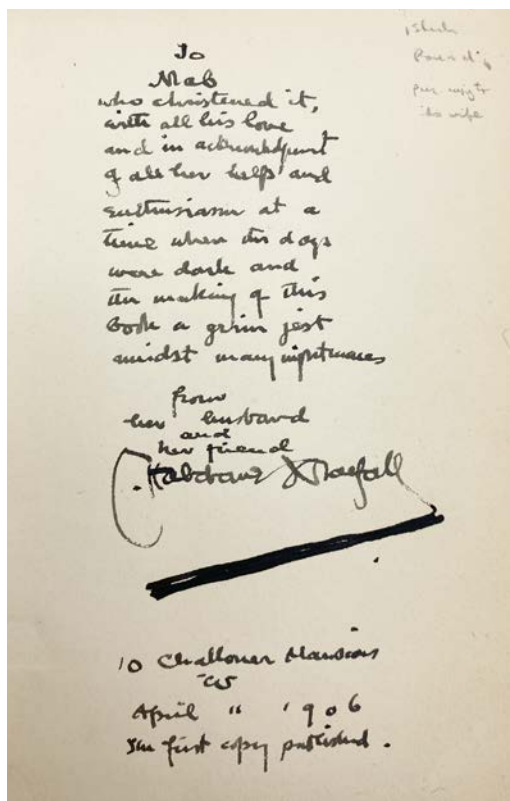 To
Mab
who christened it,
with all his love
and in acknowledgment
of all her help and
enthusiasm at a
time when the days
were dark and
the making of this
Book a grim jest
amidst many nightmares
from
her husband
and
her friend
Haldane Macfall
10 Challoner Mansions
April " 1906
The first copy published.